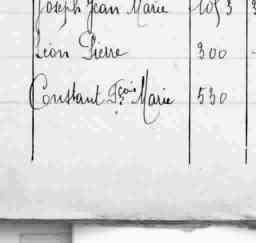 Joseph Jean Marie 1053
Léon Pierre 300
Constant Fçois Marie 530